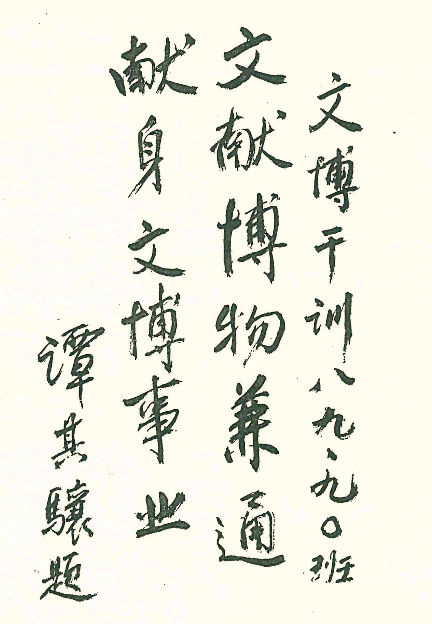 文博干训八九、九〇班
文献博物兼通
献身文博事业
谭其骧题